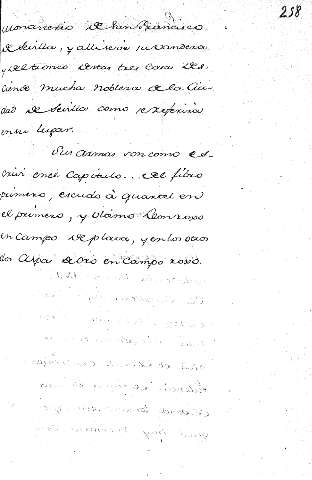 258
Monasterio de San Francisco
de Sevilla, y alli
y del tronco destas tres Casas Des-
ciende mucha nobleza de la Ciu-
dad de Sevilla como
en su lugar.
Sus armas son como es-
en el Capitulo .. del libro
primero, escudo à quartel en
el primero, y
en campo de plata, y en los otros
dos Aspa de oro en campo roxo.